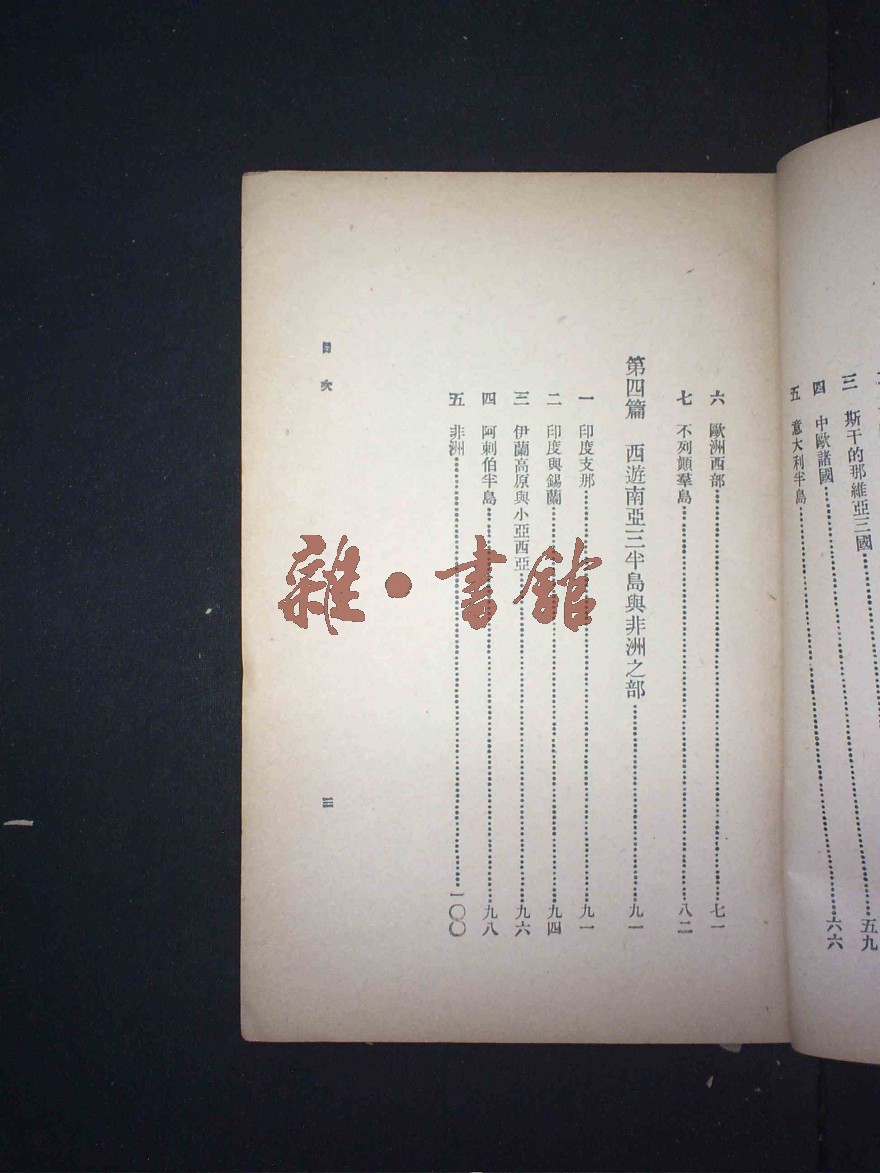 三 斯干的那維亞三國 五九
四 中歐諸國 六六
五 意大利半島
六 歐洲西部 七一
七 不列顛羣島 八二
第四篇 西遊南亞三半島與非洲之部 九一
一 印度支那 九一
二 印度與錫蘭 九四
三 伊蘭高原與小亞西亞 九六
四 阿剌伯半島 九八
五 非洲 一〇〇
目次 三
雜·書館